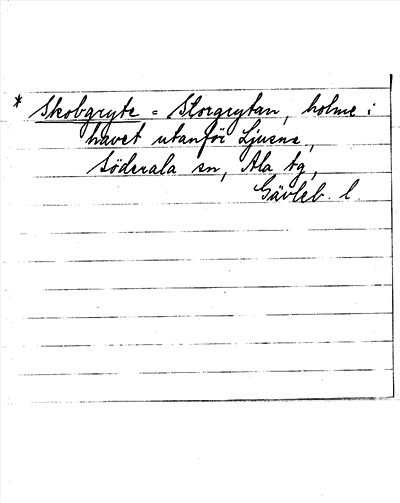 * Skobgryte = Storgrytan, holme i
havet utanför Ljusne,
Söderala sn, Ala tg,
Gävleb. l.